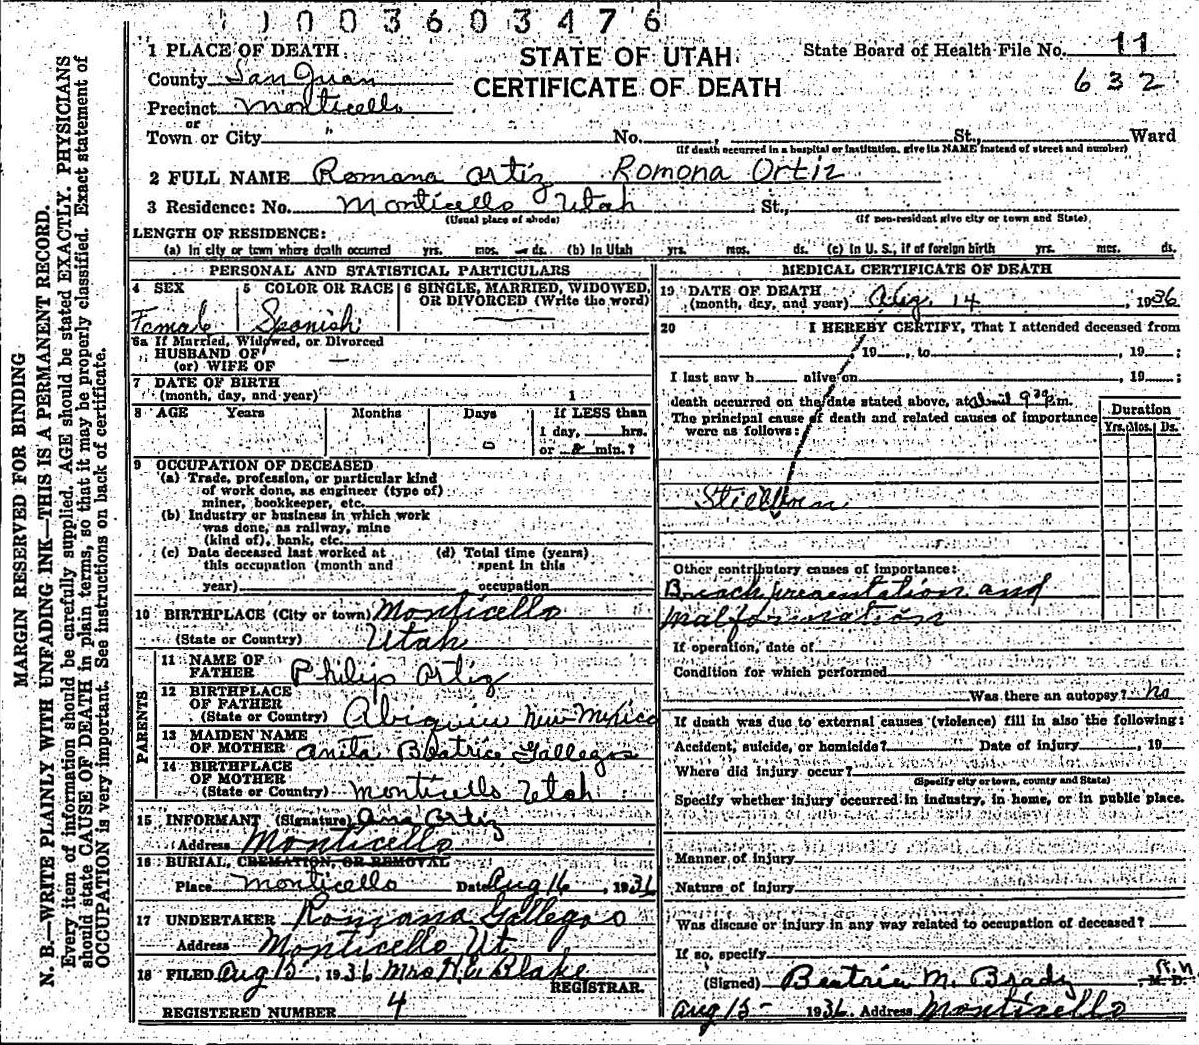 1 0 0 3 6 0 3 4 7 6
1 PLACE OF DEATH
STATE OF UTAH
CERTIFICATE OF DEATH
State Board of Health File No. 11
632
County San Juan
Precinct Monticello
or
Town or City " No. St., Ward
(If death occurred in a hospital or institution, give its NAME instead of street and number)
2 FULL NAME Romana Ortiz Romona Ortiz
3 Residence: No. Monticello Utah St.,
(Usual place of abode) (If non-resident give city or town and State)
LENGTH OF RESIDENCE:
(a) In city or town where death occurred yrs. mos. ds. (b) In Utah yrs. mos. ds. (c) In U. S., if of foreign birth yrs. mos. ds.
PERSONAL AND STATISTICAL PARTICULARS
4 SEX
Female
5 COLOR OR RACE
Spanish
6 SINGLE, MARRIED, WIDOWED, OR DIVORCED (Write the word)
6a If Married, Widowed, or Divorced
HUSBAND OF
(or) WIFE OF
7 DATE OF BIRTH
(month, day, and year)
8 AGE Years Months Days If LESS than
1 day, hrs.
or min.?
9 OCCUPATION OF DECEASED
(a) Trade, profession, or particular kind
of work done, as engineer (type of)
miner, bookkeeper, etc.
(b) Industry or business in which work
was done, as railway, mine
(kind of), bank, etc.
(c) Date deceased last worked at
this occupation (month and
year)
(d) Total time (years)
spent in this
occupation
10 BIRTHPLACE (City or town) Monticello
(State or Country) Utah
PARENTS
11 NAME OF
FATHER Philip Ortiz
12 BIRTHPLACE
OF FATHER
(State or Country) Abiquiu New Mexico
13 MAIDEN NAME
OF MOTHER Anita Beatrice Gallegos
14 BIRTHPLACE
OF MOTHER
(State or Country) Monticello Utah
15 INFORMANT (Signature) Ana Ortiz
Address Monticello
16 BURIAL, CREMATION, OR REMOVAL
Place Monticello Date Aug 16, 1936
17 UNDERTAKER Romana Gallegos
Address Monticello Ut.
18 FILED Aug 15, 1936 Mrs H.E. Blake
REGISTRAR.
REGISTERED NUMBER 4
MEDICAL CERTIFICATE OF DEATH
19 DATE OF DEATH
(month, day, and year) Aug. 14, 1936
20 I HEREBY CERTIFY, That I attended deceased from
, 19 , to , 19 ;
I last saw h alive on , 19 ;
death occurred on the date stated above, at m.
The principal cause of death and related causes of importance
were as follows:
Duration
Yrs. Mos. Ds.
Stillborn
Other contributory causes of importance:
Breach presentation and
malformation
If operation, date of
Condition for which performed
Was there an autopsy? no
If death was due to external causes (violence) fill in also the following:
Accident, suicide, or homicide? Date of injury , 19
Where did injury occur?
(Specify city or town, county and State)
Specify whether injury occurred in industry, in home, or in public place.
Manner of injury
Nature of injury
Was disease or injury in any way related to occupation of deceased?
If so, specify
(Signed) Beatrice M. Brady R.N., M. D.
Aug 15 1936. Address Monticello
MARGIN RESERVED FOR BINDING
N. B.—WRITE PLAINLY WITH UNFADING INK—THIS IS A PERMANENT RECORD.
Every item of information should be carefully supplied. AGE should be stated EXACTLY. PHYSICIANS
should state CAUSE OF DEATH in plain terms, so that it may be properly classified. Exact statement of
OCCUPATION is very important. See instructions on back of certificate.